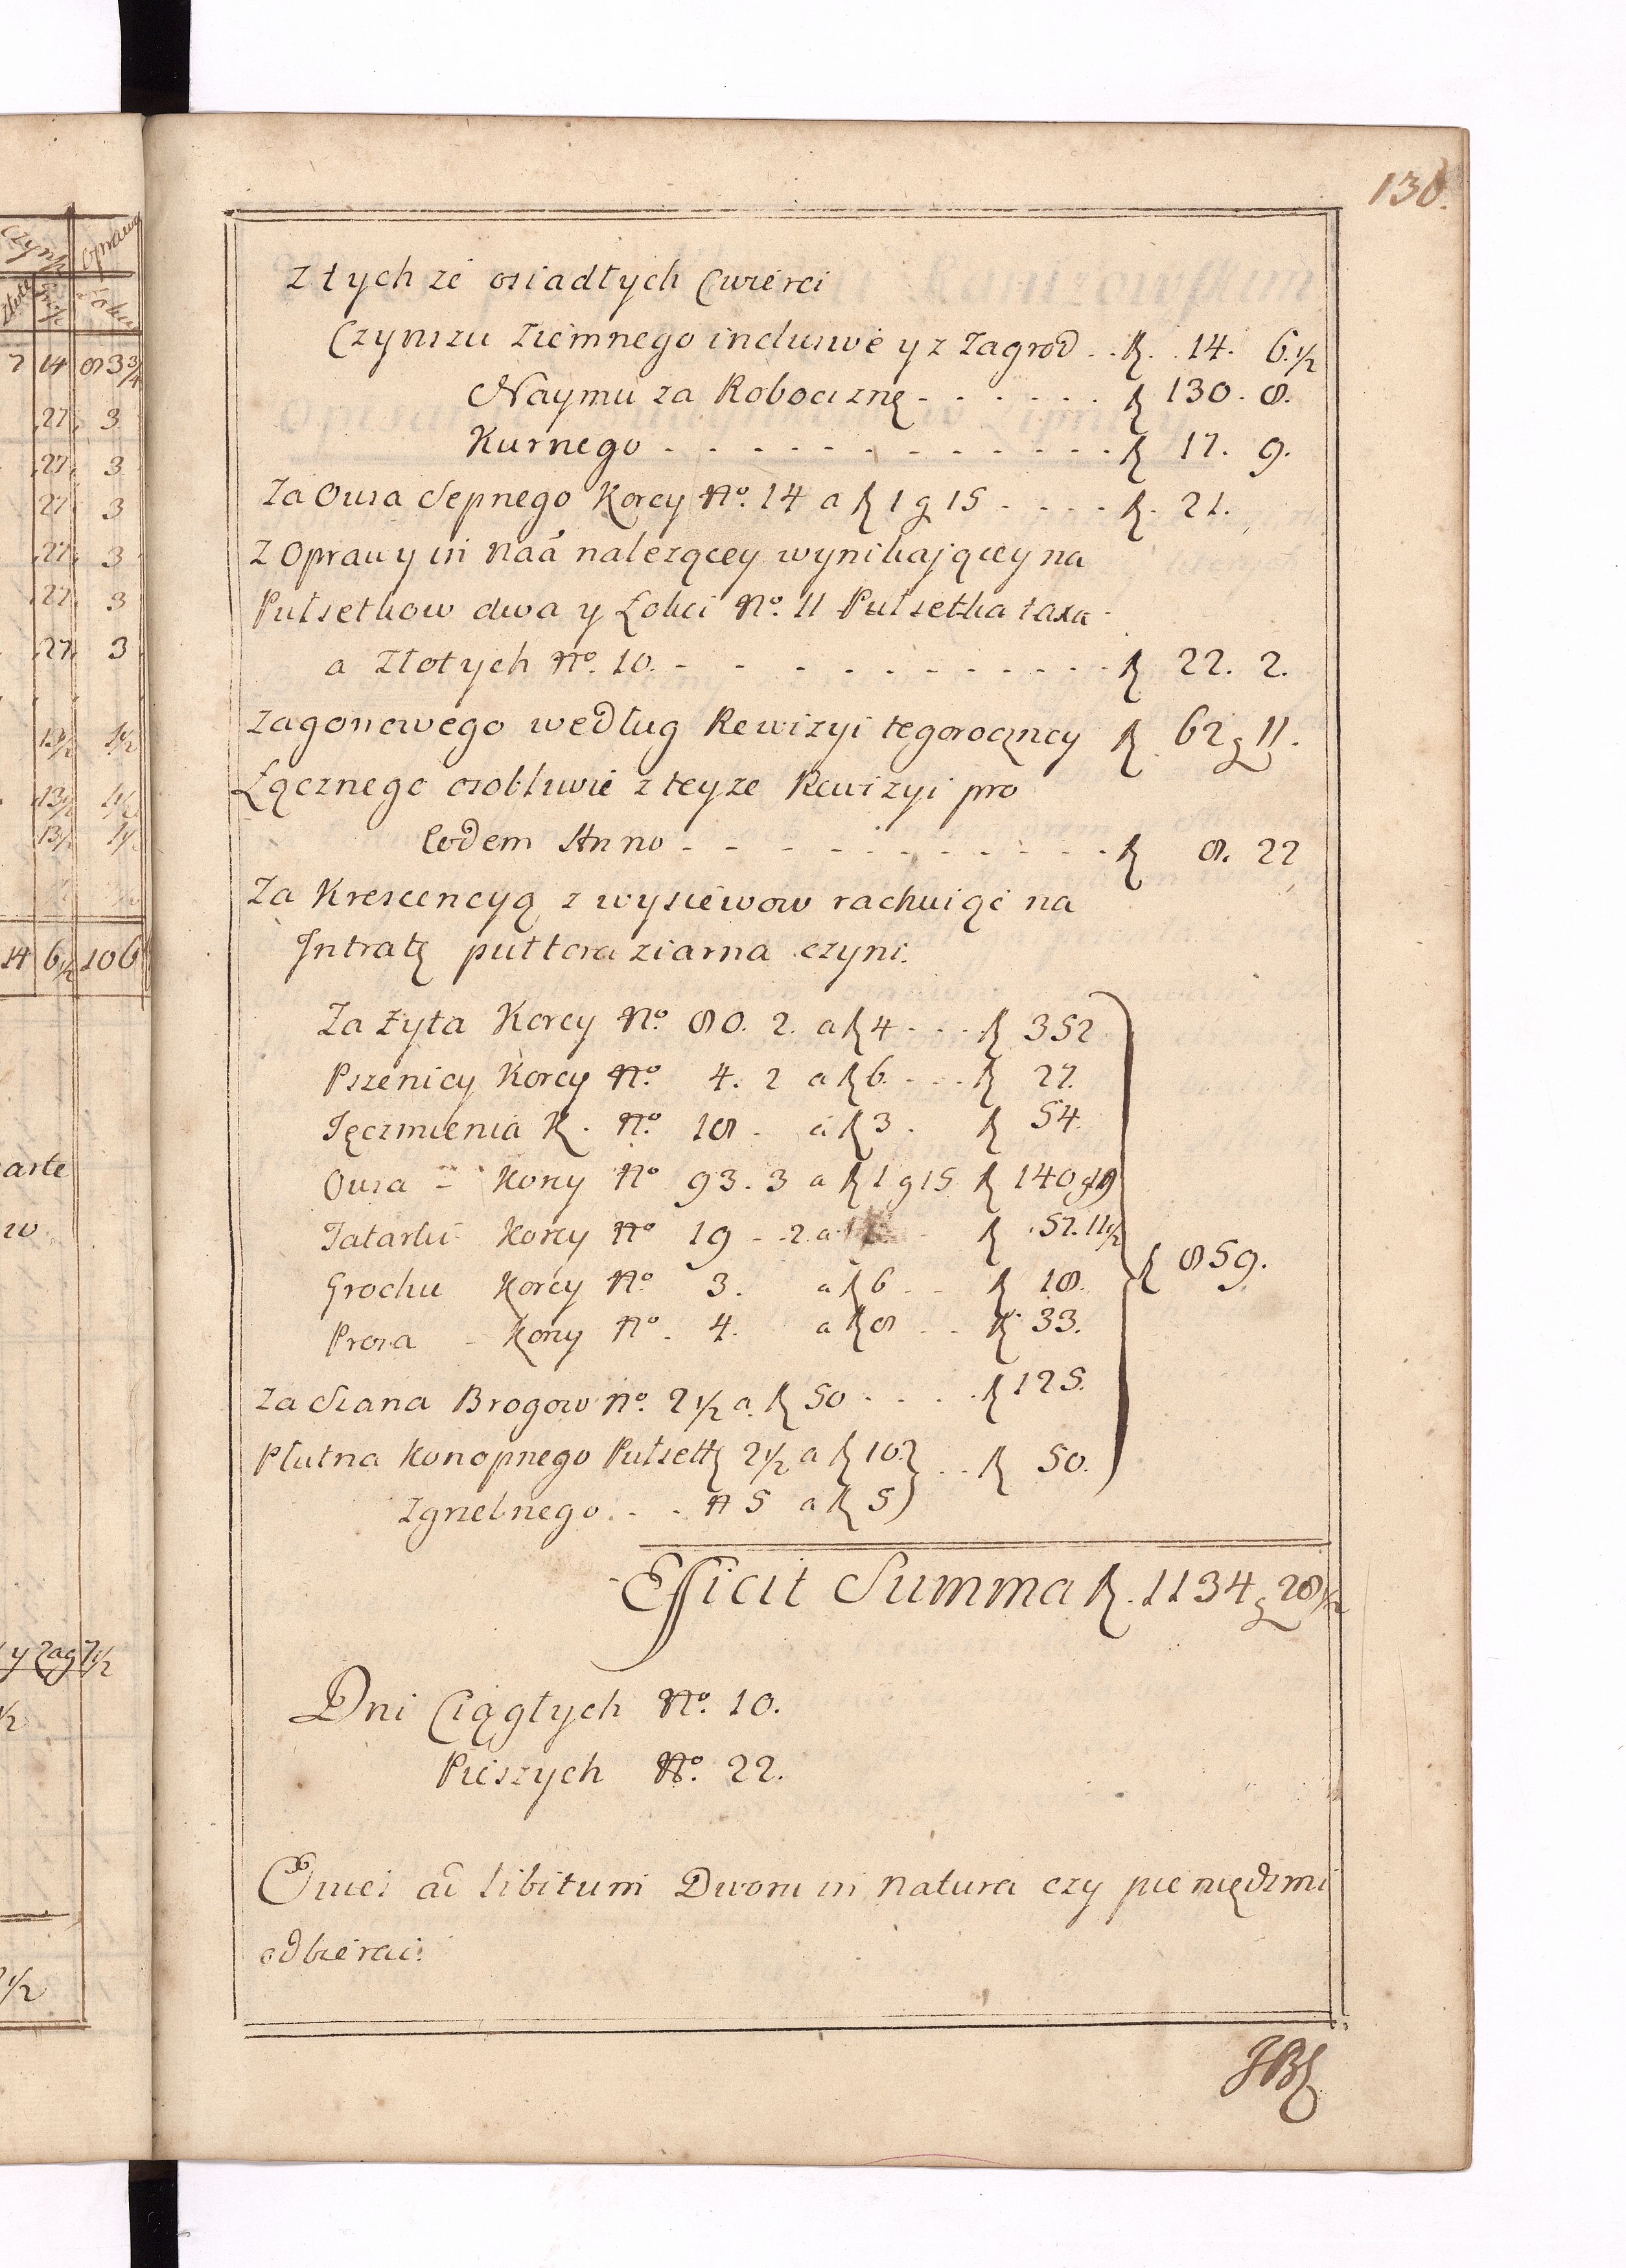 130.
Z tych ze osiadłych Cwierci
Czynszu Ziemnego inclusive y z Zagrod . . zł. 14. 6.½
Naymu za Robociznę - - - - - - zł 130. 8.
Kurnego - - - - - - - - - - - - zł 17. 9.
Za Owsa Sepnego Korcy No. 14 a zł 1 g 15 - - - - zł. 21.
Z Oprawy in naā należącey wynikającey na
Pułsetkow dwa y Łokci No. 11 Pułsetka taxa
a Złotych No. 10. - - - - - - - - - - - zł 22. 2.
Zagonowego według Rewizyi tegoroczney zł 62 g 11.
Łącznego osobliwie z teyze Rewizyi pro
Eodem Anno - - - - - - - - - - - zł 8. 22
Za Krescencyą z wysiewow rachuiąć na
Intratę pułtora ziarna czyni.
Za Żyta Korcy No. 80. 2. a zł 4 - - - zł 352
Pszenicy Korcy No. 4. 2 a zł 6. - - - zł 27.
Jęczmienia K. No. 18 - a zł 3 . zł 54.
Owsa = Korcy No 93. 3 a zł 1 g 15 zł 140 g 19
Tatarki Korcy No 19 - - 2 a zł 57. 11½
Grochu Korcy No. 3. a zł 6 - - zł 18.
Prosa - Korcy No. 4. a zł 8 . . zł 33.
zł 859.
Za Siana Brogow No. 2½ a. zł 50 - - - . zł 125.
Płutna Konopnego Pułsetk 2½ a zł 10. . . zł 50.
Zgrzebnego . - . N 5 a zł 5
Efficit Summa zł. 1134 g 28½
Dni Ciągłych No. 10.
Pieszych No. 22.
ad libitum Dworu in natura czy pieniędzmi
odbierać.